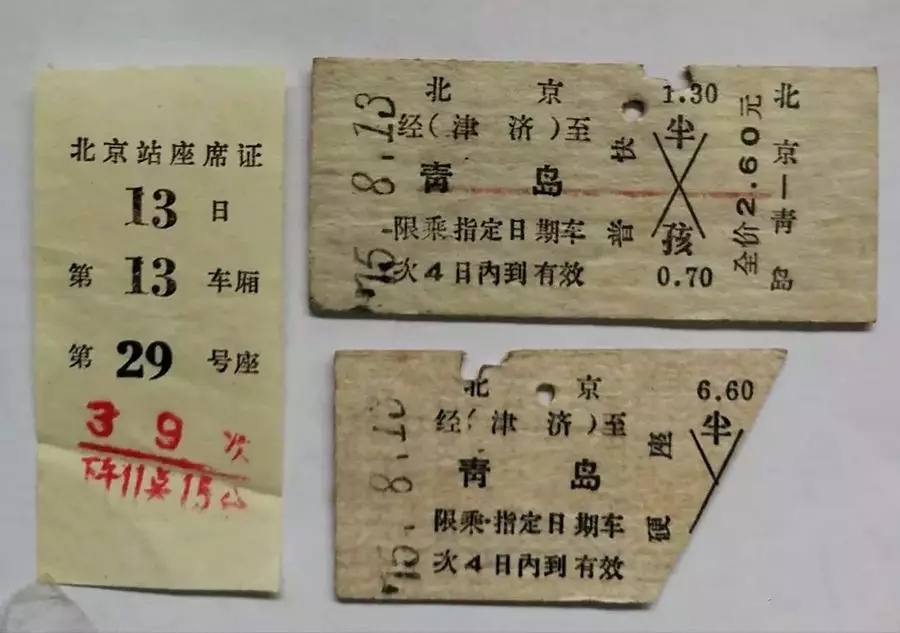 北京站座席证
13日
第13车厢
第29号座
39次
下午11点15分
北京
经(津济)至
青岛
限乘指定日期车
次4日内到有效
普快
1.30
半
孩
0.70
全价2.60元
北京—青岛
75.8.13
北京
经(津济)至
青岛
限乘指定日期车
次4日内到有效
硬座
6.60
半
75.8.13